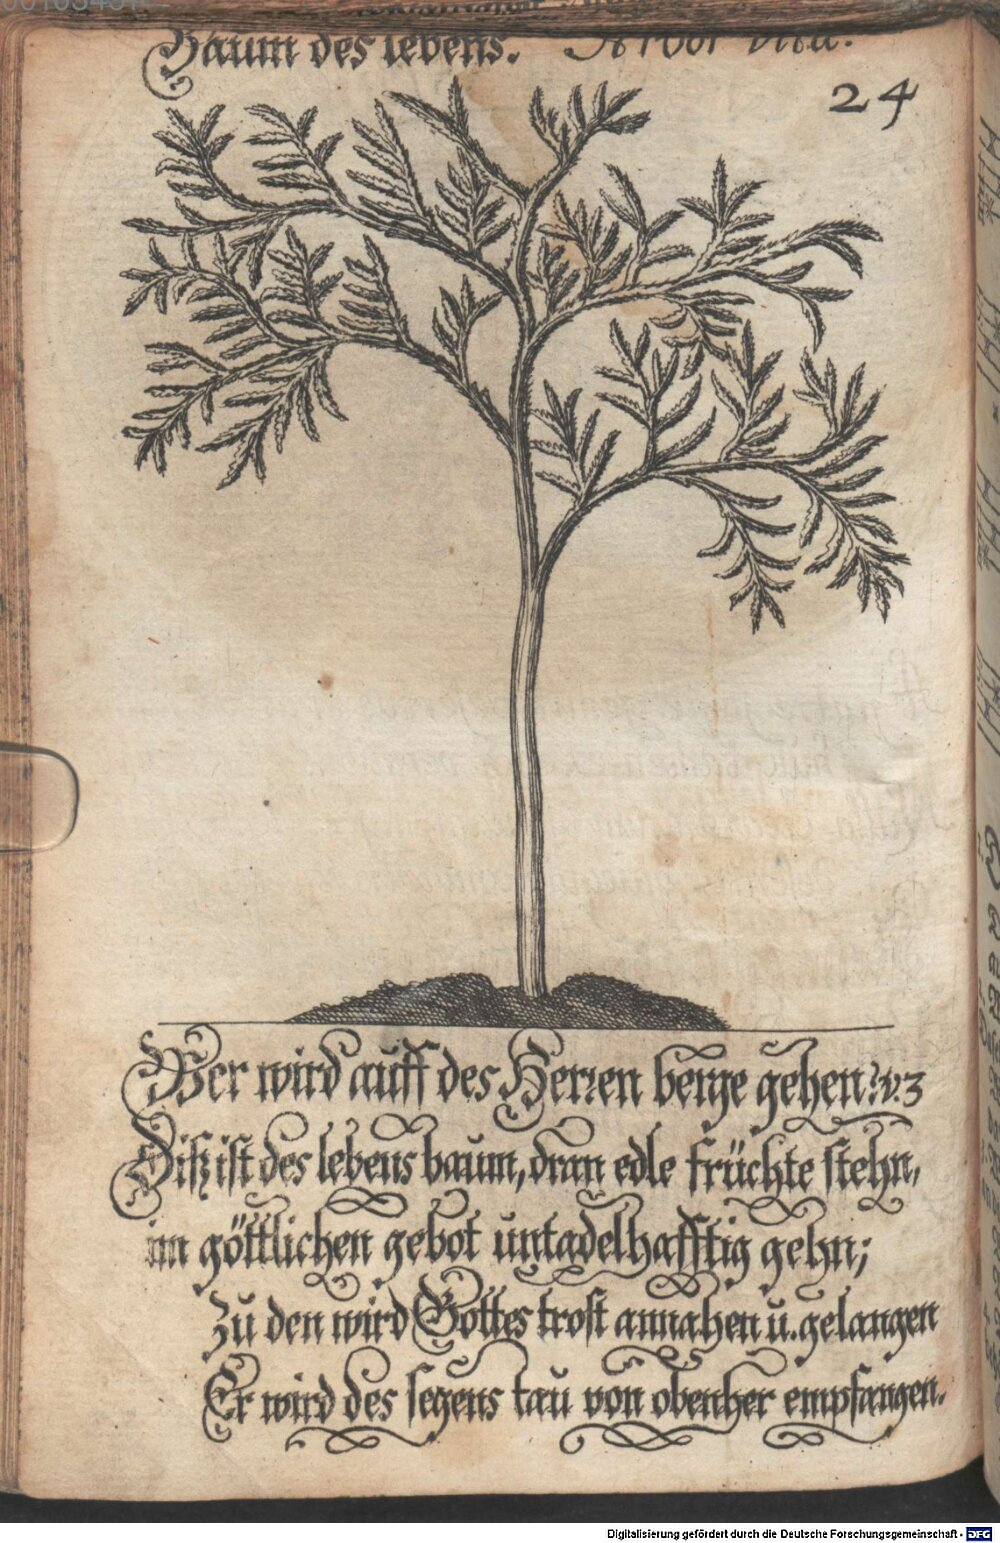 Baum des lebens. Arbor vitæ.
24
Wer wird auff des Herren berge gehen? v. 3
Diß ist des lebens baum, dran edle früchte stehn,
im göttlichen gebot untadelhafftig gehn;
Zu den wird Gottes trost annahen u. gelangen
Er wird des segens tau von obenher empfangen.
Digitalisierung gefördert durch die Deutsche Forschungsgemeinschaft - DFG